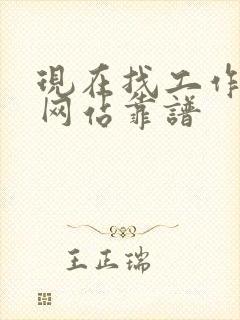 現在找工作
网站靠譜
王正瑞